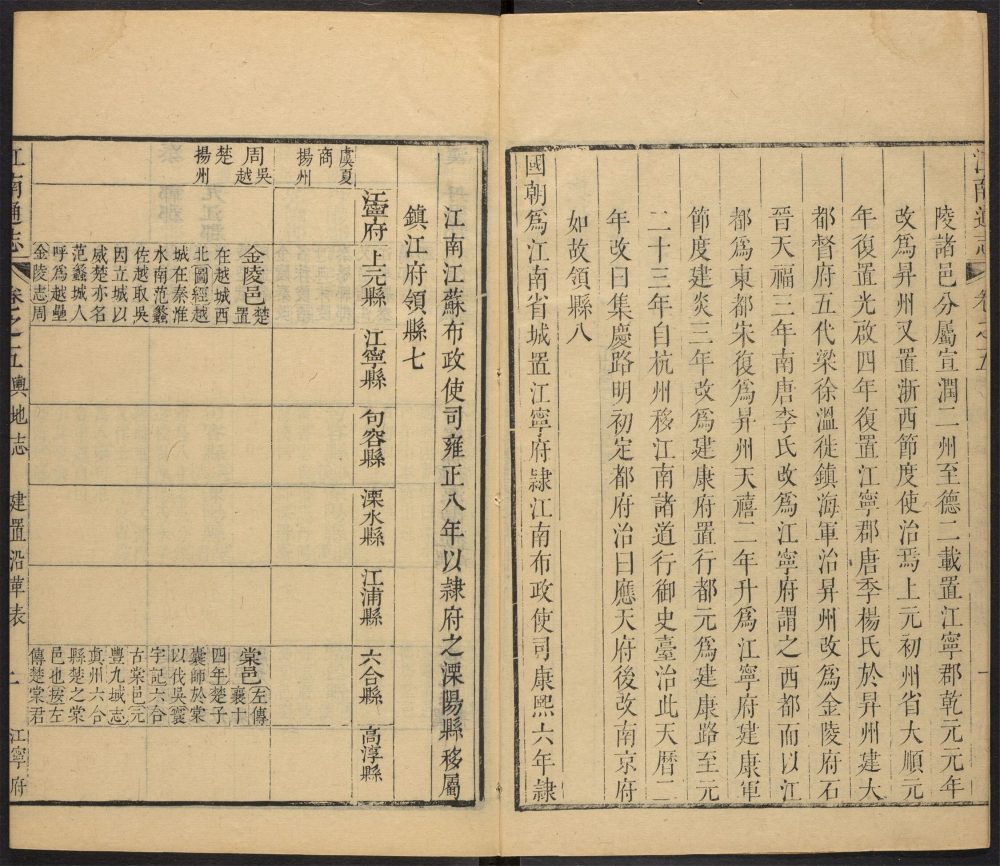 江南通志 卷之五
陵諸邑分屬宣潤二州至德二載置江寧郡乾元元年
改為昇州又置浙西節度使治焉上元初州省大順元
年復置光啟四年復置江寧郡唐季楊氏於昇州建大
都督府五代梁徐溫徙鎮海軍治昇州改為金陵府石
晉天福三年南唐李氏改為江寧府謂之西都而以江
都為東都宋復為昇州天禧二年升為江寧府建康軍
節度建炎三年改為建康府置行都元為建康路至元
二十三年自杭州移江南諸道行御史臺治此天曆二
年改曰集慶路明初定都府治曰應天府後改南京府
如故領縣八
國朝為江南省城置江寧府隸江南布政使司康熙六年隸
江南江蘇布政使司雍正八年以隸府之溧陽縣移屬
鎮江府領縣七
江寧府
上元縣
江寧縣
句容縣
溧水縣
江浦縣
六合縣
高淳縣
虞夏
商
揚州
周吳
越
楚
揚州
金陵邑楚
置
在越城西
北圖經越
城在秦淮
水南范蠡
佐越取吳
因立城以
威楚亦名
范蠡城人
呼為越壘
金陵志周
棠邑左傳
襄十
四年楚子
囊師於棠
以伐吳寰
宇記六合
古棠邑元
豐九域志
真州六合
縣楚之棠
邑也按左
傳楚棠君
江南通志 卷之五 輿地志 建置沿革表 一 江寧府